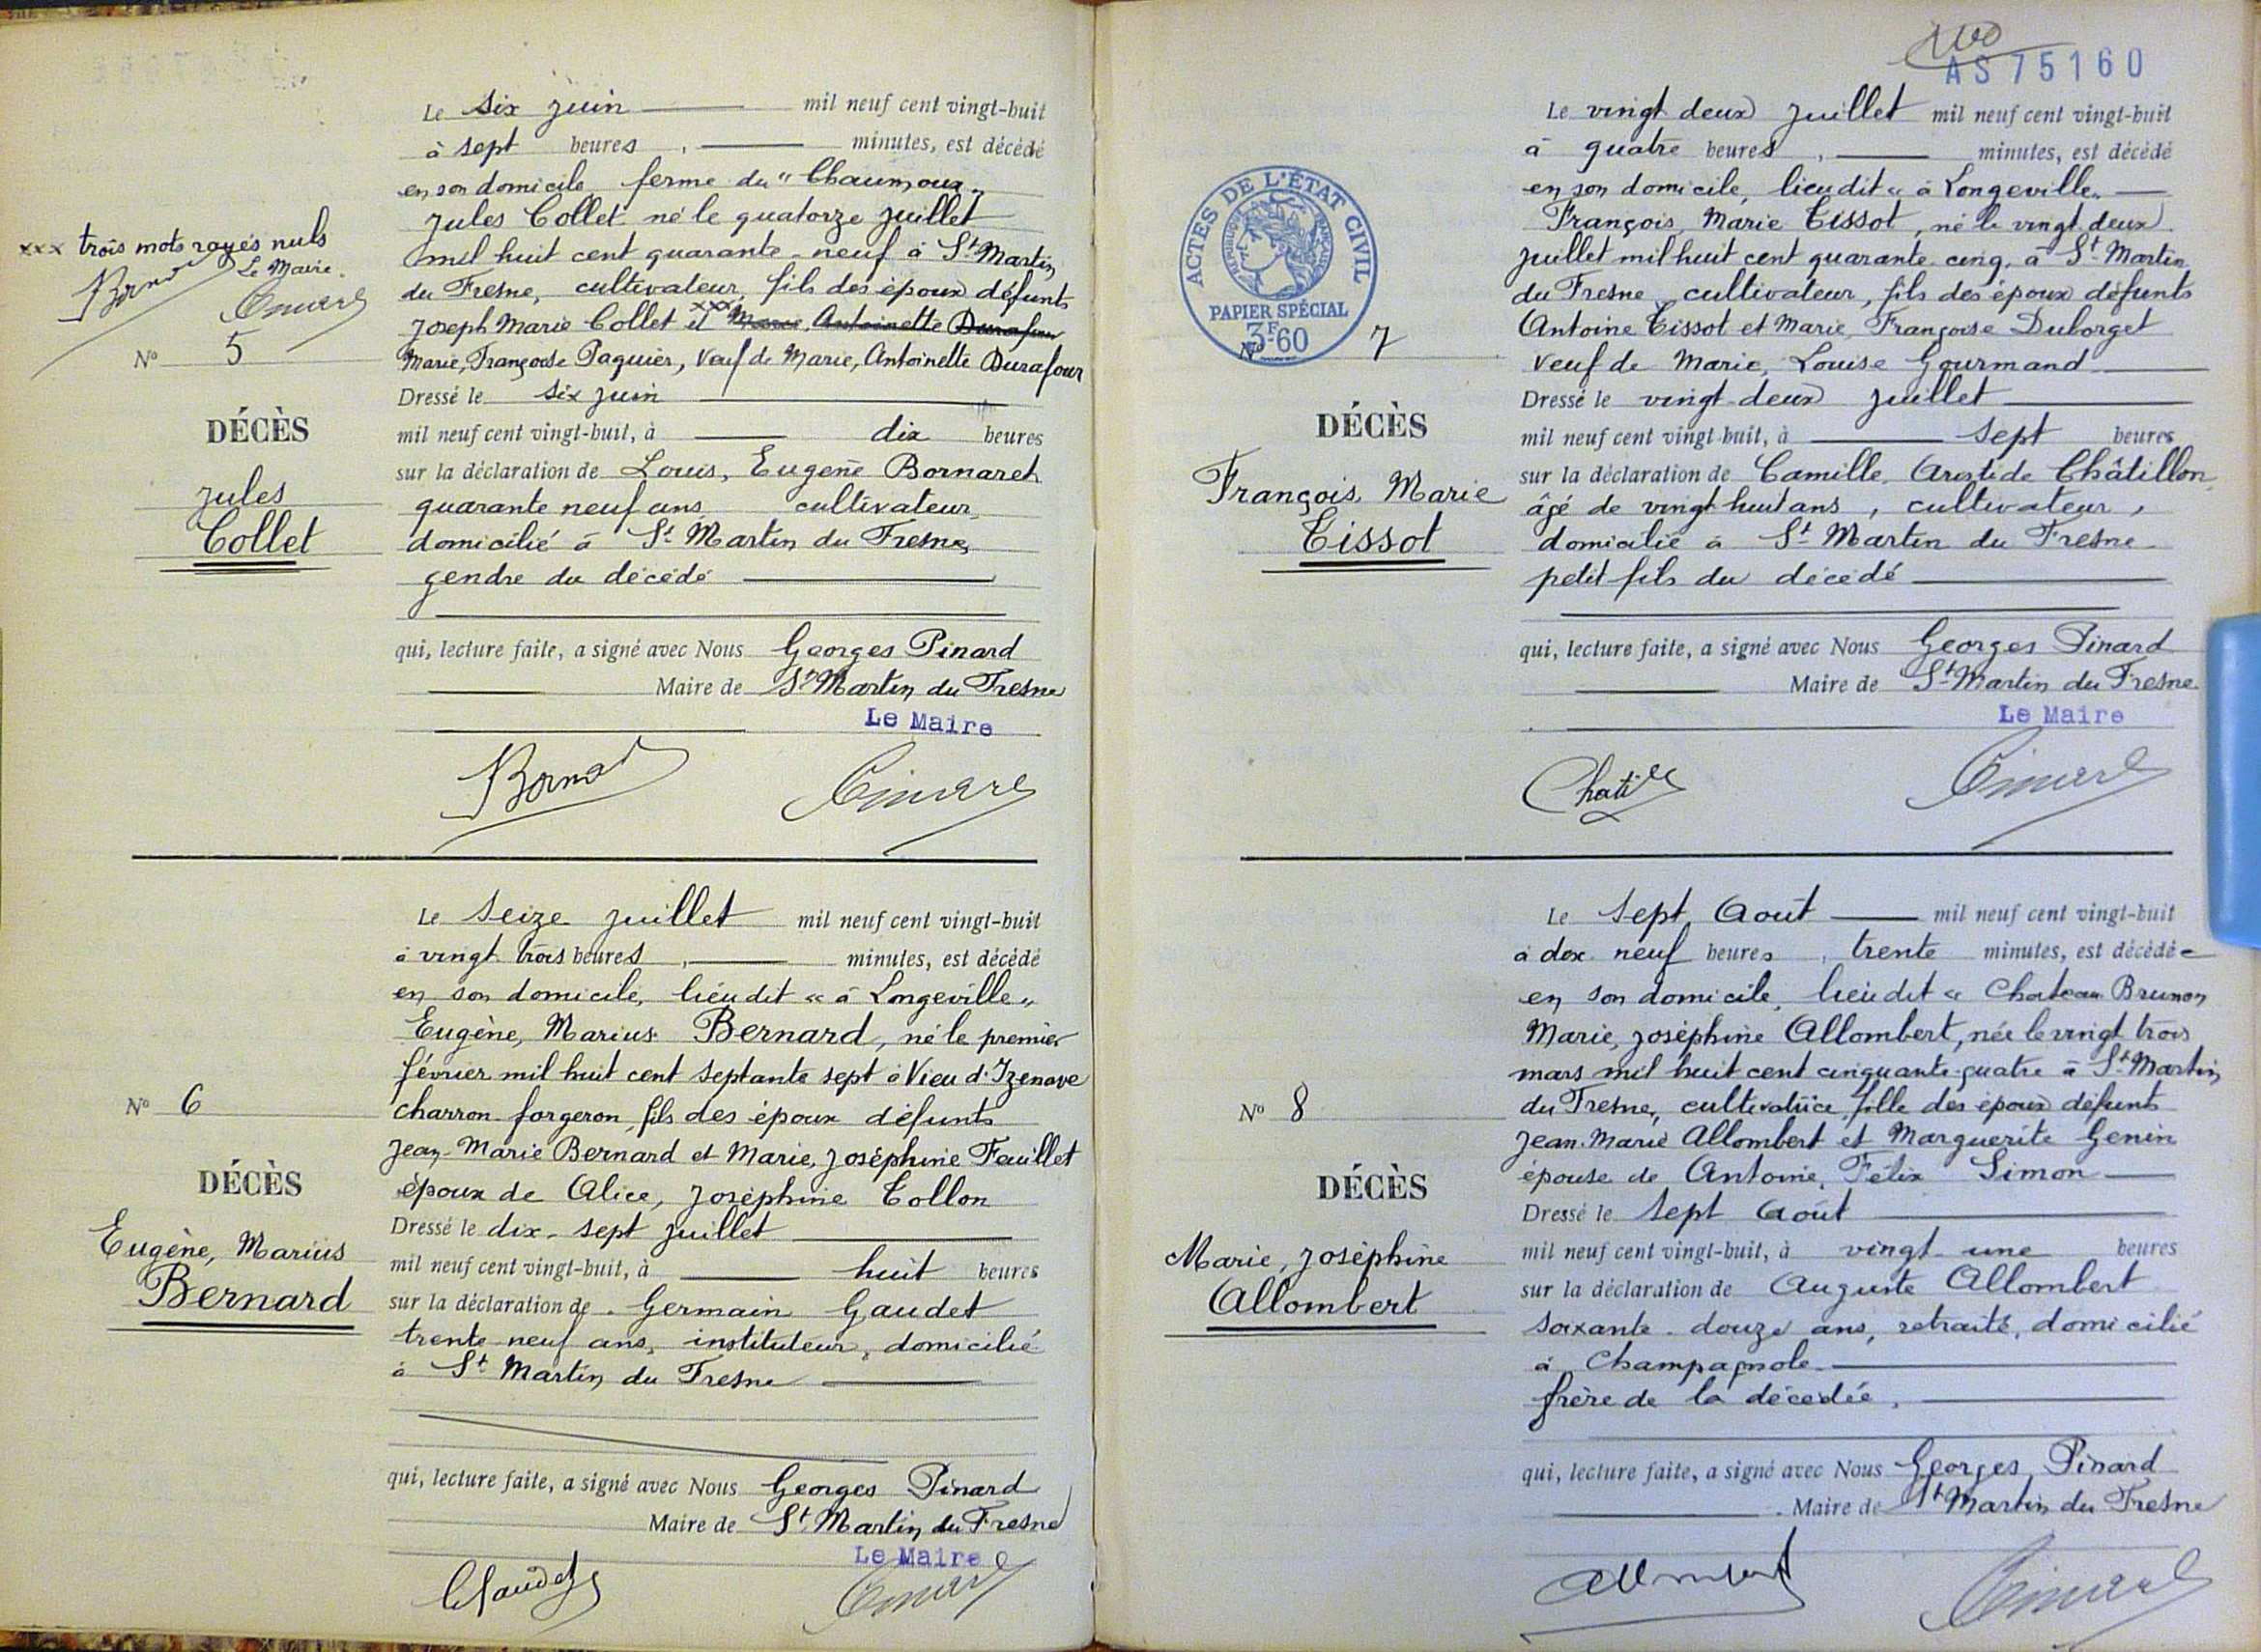 Le six juin mil neuf cent vingt-huit
à sept heures, minutes, est décédé
en son domicile, ferme du "Chaumoux"
Jules Collet né le quatorze juillet
mil huit cent quarante-neuf à St Martin
du Fresne, cultivateur, fils des époux défunts
Joseph Marie Collet et xxx Marie, Antoinette Durafour
Marie, Françoise Paquier, veuf de Marie, Antoinette Durafour
Dressé le six juin
mil neuf cent vingt-huit, à dix heures
sur la déclaration de Louis, Eugène Bornaret
quarante neuf ans, cultivateur,
domicilié à St Martin du Fresne,
gendre du décédé
qui, lecture faite, a signé avec Nous Georges Pinard
Maire de St Martin du Fresne
Le Maire
xxx trois mots rayés nuls
Le Maire.
No 5
DÉCÈS
Jules
Collet
Le Seize juillet mil neuf cent vingt-huit
à vingt trois heures, minutes, est décédé
en son domicile, lieu dit « à Longeville »
Eugène, Marius Bernard, né le premier
février mil huit cent septante sept à Vieu d'Izenave
charron-forgeron, fils des époux défunts
Jean-Marie Bernard et Marie, Joséphine Feuillet
époux de Alice, Joséphine Tollon
Dressé le dix-sept juillet
mil neuf cent vingt-huit, à huit heures
sur la déclaration de Germain Gaudet
trente-neuf ans, instituteur, domicilié
à St Martin du Fresne
qui, lecture faite, a signé avec Nous Georges Pinard
Maire de St Martin du Fresne
Le Maire
No 6
DÉCÈS
Eugène, Marius
Bernard
AS 75160
Le vingt deux juillet mil neuf cent vingt-huit
à quatre heures, minutes, est décédé
en son domicile, lieu dit « à Longeville »
François, Marie Tissot, né le vingt deux
juillet mil huit cent quarante-cinq, à St Martin
du Fresne, cultivateur, fils des époux défunts
Antoine Tissot et Marie, Françoise Duborget
veuf de Marie, Louise Gourmand
Dressé le vingt-deux juillet
mil neuf cent vingt-huit, à Sept heures
sur la déclaration de Camille, Aristide Châtillon,
âgé de vingt huit ans, cultivateur,
domicilié à St Martin du Fresne
petit fils du décédé
qui, lecture faite, a signé avec Nous Georges Pinard
Maire de St Martin du Fresne
Le Maire
ACTES DE L'ÉTAT CIVIL
RÉPUBLIQUE FRANÇAISE
PAPIER SPÉCIAL
3F60
No 7
DÉCÈS
François, Marie
Tissot
Le Sept Août mil neuf cent vingt-huit
à dix neuf heures, trente minutes, est décédée
en son domicile, lieu dit « Chateau Brunon
Marie, Joséphine Allombert, née le vingt trois
mars mil huit cent cinquante-quatre à St Martin
du Fresne, cultivatrice, fille des époux défunts
Jean-Marie Allombert et Marguerite Genin
épouse de Antoine, Félix Simon
Dressé le Sept Août
mil neuf cent vingt-huit, à vingt-une heures
sur la déclaration de Auguste Allombert
soixante-douze ans, retraité, domicilié
à Champagnole
frère de la décédée,
qui, lecture faite, a signé avec Nous Georges Pinard
Maire de St Martin du Fresne
No 8
DÉCÈS
Marie, Joséphine
Allombert